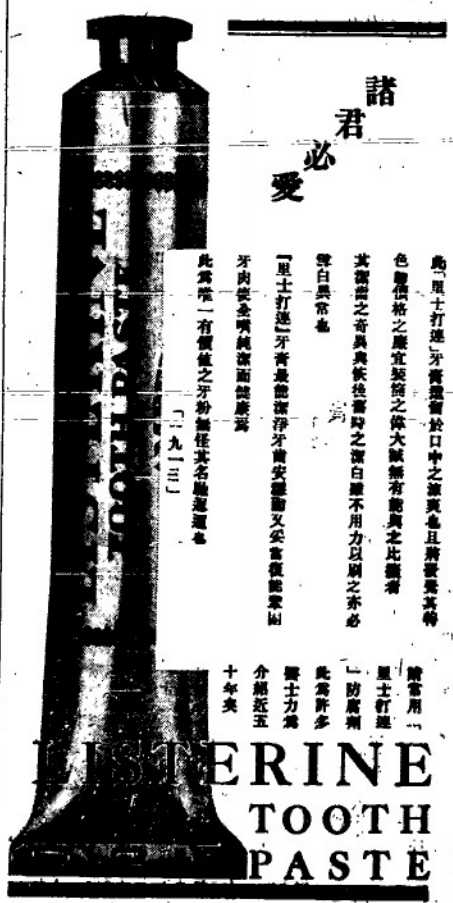 諸君必愛
此「里士打連」牙膏遺留於口中之涼爽也且將發覺其特
色與價格之廉宜裝筒之偉大誠無有能與之比擬者
其潔齒之奇異與恢復舊時之潔白雖不用力以刷之亦必
雪白異常也
「里士打連」牙膏最能潔淨牙齒安穩而又妥當復能鞏固
牙肉使全嘴純潔而健康焉
此為唯一有價值之牙粉無怪其名馳遐邇也
「一九一三」
請常用「
里士打連
」防腐劑
此為許多
醫士力為
介紹近五
十年矣
TOOTH PASTE
LISTERINE
TOOTH
PASTE